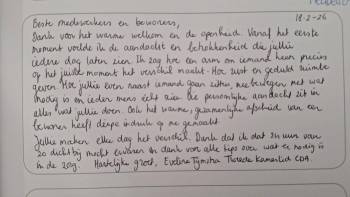 Beste medewerkers en bewoners,
18-2-26
Dank voor het warme welkom en de openheid. Vanaf het eerste
moment voelde ik de aandacht en betrokkenheid die jullie
iedere dag laten zien. Ik zag hoe een arm om iemand heen precies
op het juiste moment het verschil maakt. Hoe rust en geduld ruimte
geven. Hoe jullie even naast iemand gaan zitten, mee bewegen met wat
nodig is en ieder mens écht zien. Die persoonlijke aandacht zit in
alles wat jullie doen. Ook het warme, gezamenlijke afscheid van een
bewoner heeft diepe indruk op me gemaakt.
Jullie maken elke dag het verschil. Dank dat ik dat 24 uur van
zo dichtbij mocht ervaren en dank voor alle tips over wat er nodig is
in de zorg. Hartelijke groet, Eveline Tijmstra Tweede Kamerlid CDA.